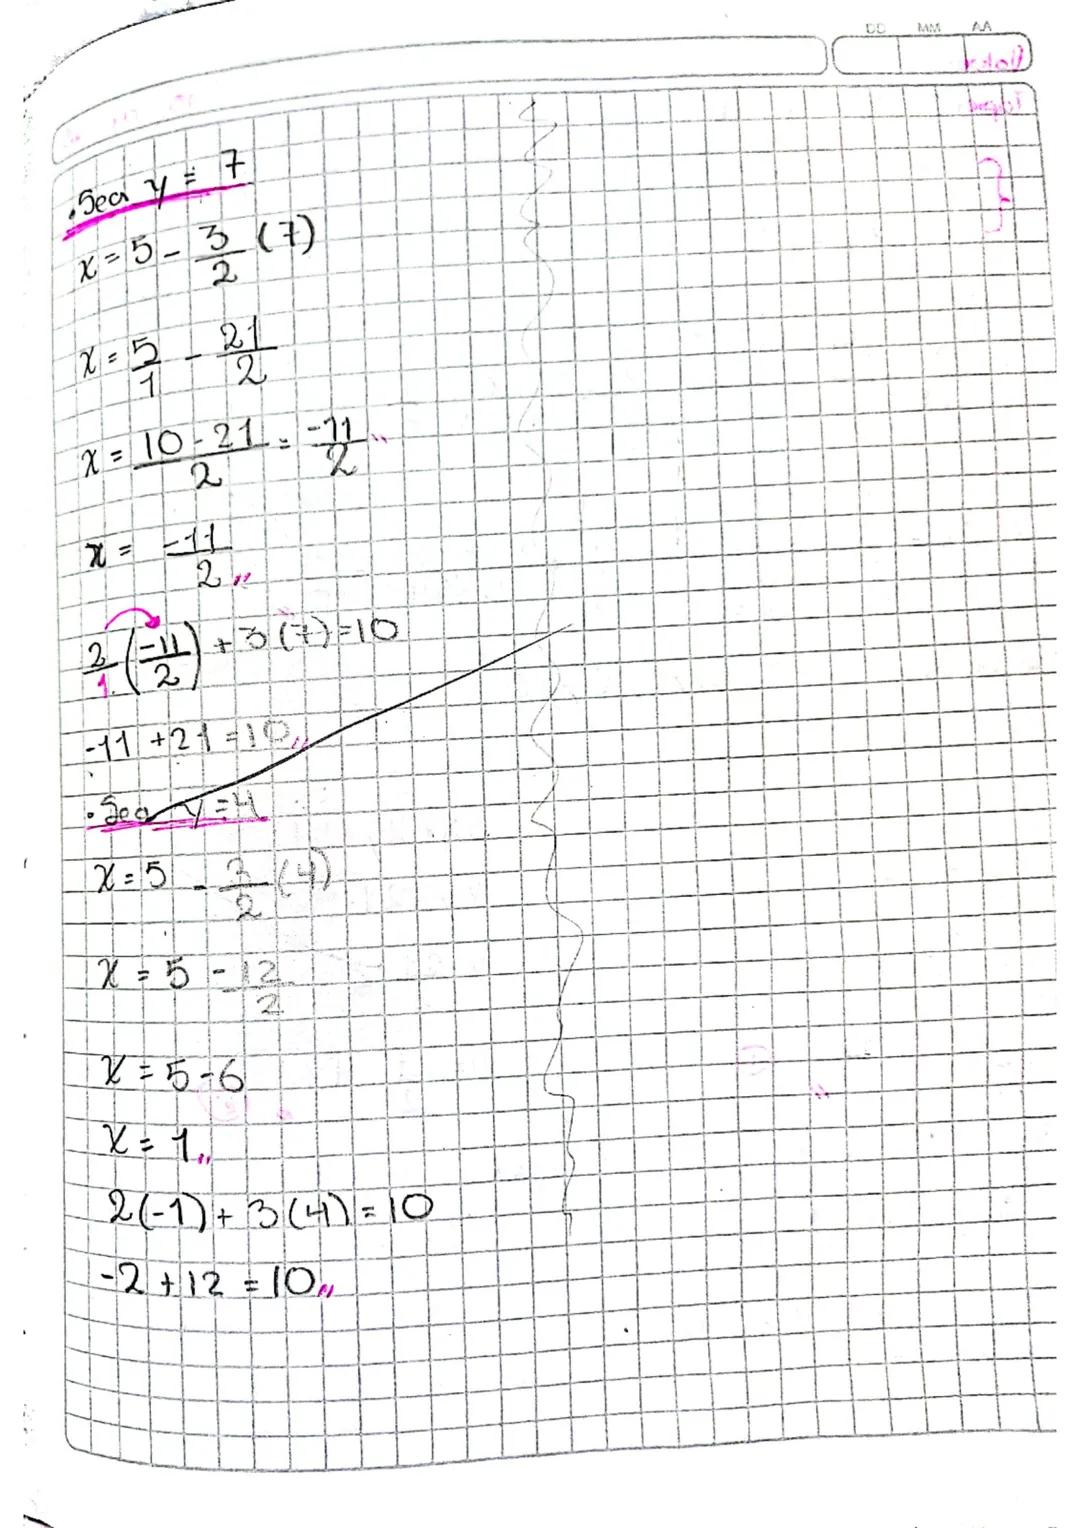 DD MM AA
.Sea y = 7
x = 5 - 3/2 (7)
x = 5/1 - 21/2
x = 10-21/2 = -11/2
x = -11/2
2/1 (-11/2) + 3(7)=10
-11 +21 =10
. Sea y = 4
x = 5 - 3/2 (4)
x = 5 - 12/2
x = 5-6
x = 1
2(-1)+ 3(4) = 10
-2 +12 = 10